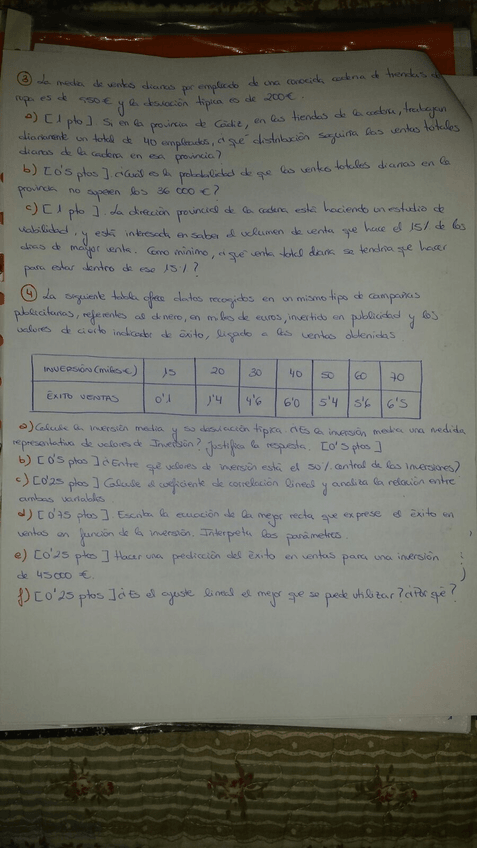 ③ La media de ventas diarias por empleado de una conocida cadena de tiendas de
ropa es de 850€ y la desviación típica es de 200€.
a) [1 pto] Si en la provincia de Cádiz, en las tiendas de la cadena, trabajan
diariamente un total de 40 empleados, ¿qué distribución seguiría las ventas totales
diarias de la cadena en esa provincia?
b) [0'5 ptos]. ¿Cuál es la probabilidad de que las ventas totales diarias en la
provincia no superen los 36 000€?
c) [1 pto]. La dirección provincial de la cadena está haciendo un estudio de
viabilidad, y está interesada en saber el volumen de venta que hace el 15% de los
días de mayor venta. Como mínimo, ¿qué venta total diaria se tendría que hacer
para estar dentro de ese 15%?
④ La siguiente tabla ofrece datos recogidos en un mismo tipo de campañas
publicitarias, referentes al dinero, en miles de euros, invertido en publicidad y los
valores de cierto indicador de éxito, ligado a las ventas obtenidas
INVERSIÓN (miles€) 15 20 30 40 50 60 70
ÉXITO VENTAS 0'1 1'4 4'6 6'0 5'4 5'6 6'5
a) Calcule la inversión media y su desviación típica. ¿Es la inversión media una medida
representativa de valores de Inversión? Justifica la respuesta. [0'5 ptos]
b) [0'5 ptos] ¿Entre qué valores de inversión está el 50% central de las inversiones?
c) [0'25 ptos] Calcule el coeficiente de correlación lineal y analiza la relación entre
ambas variables.
d) [0'75 ptos]. Escriba la ecuación de la mejor recta que exprese el éxito en
ventas en función de la inversión. Interpreta los parámetros.
e) [0'25 ptos] Hacer una predicción del éxito en ventas para una inversión
de 45000 €.
f) [0'25 ptos] ¿Es el ajuste lineal el mejor que se puede utilizar? ¿Por qué?